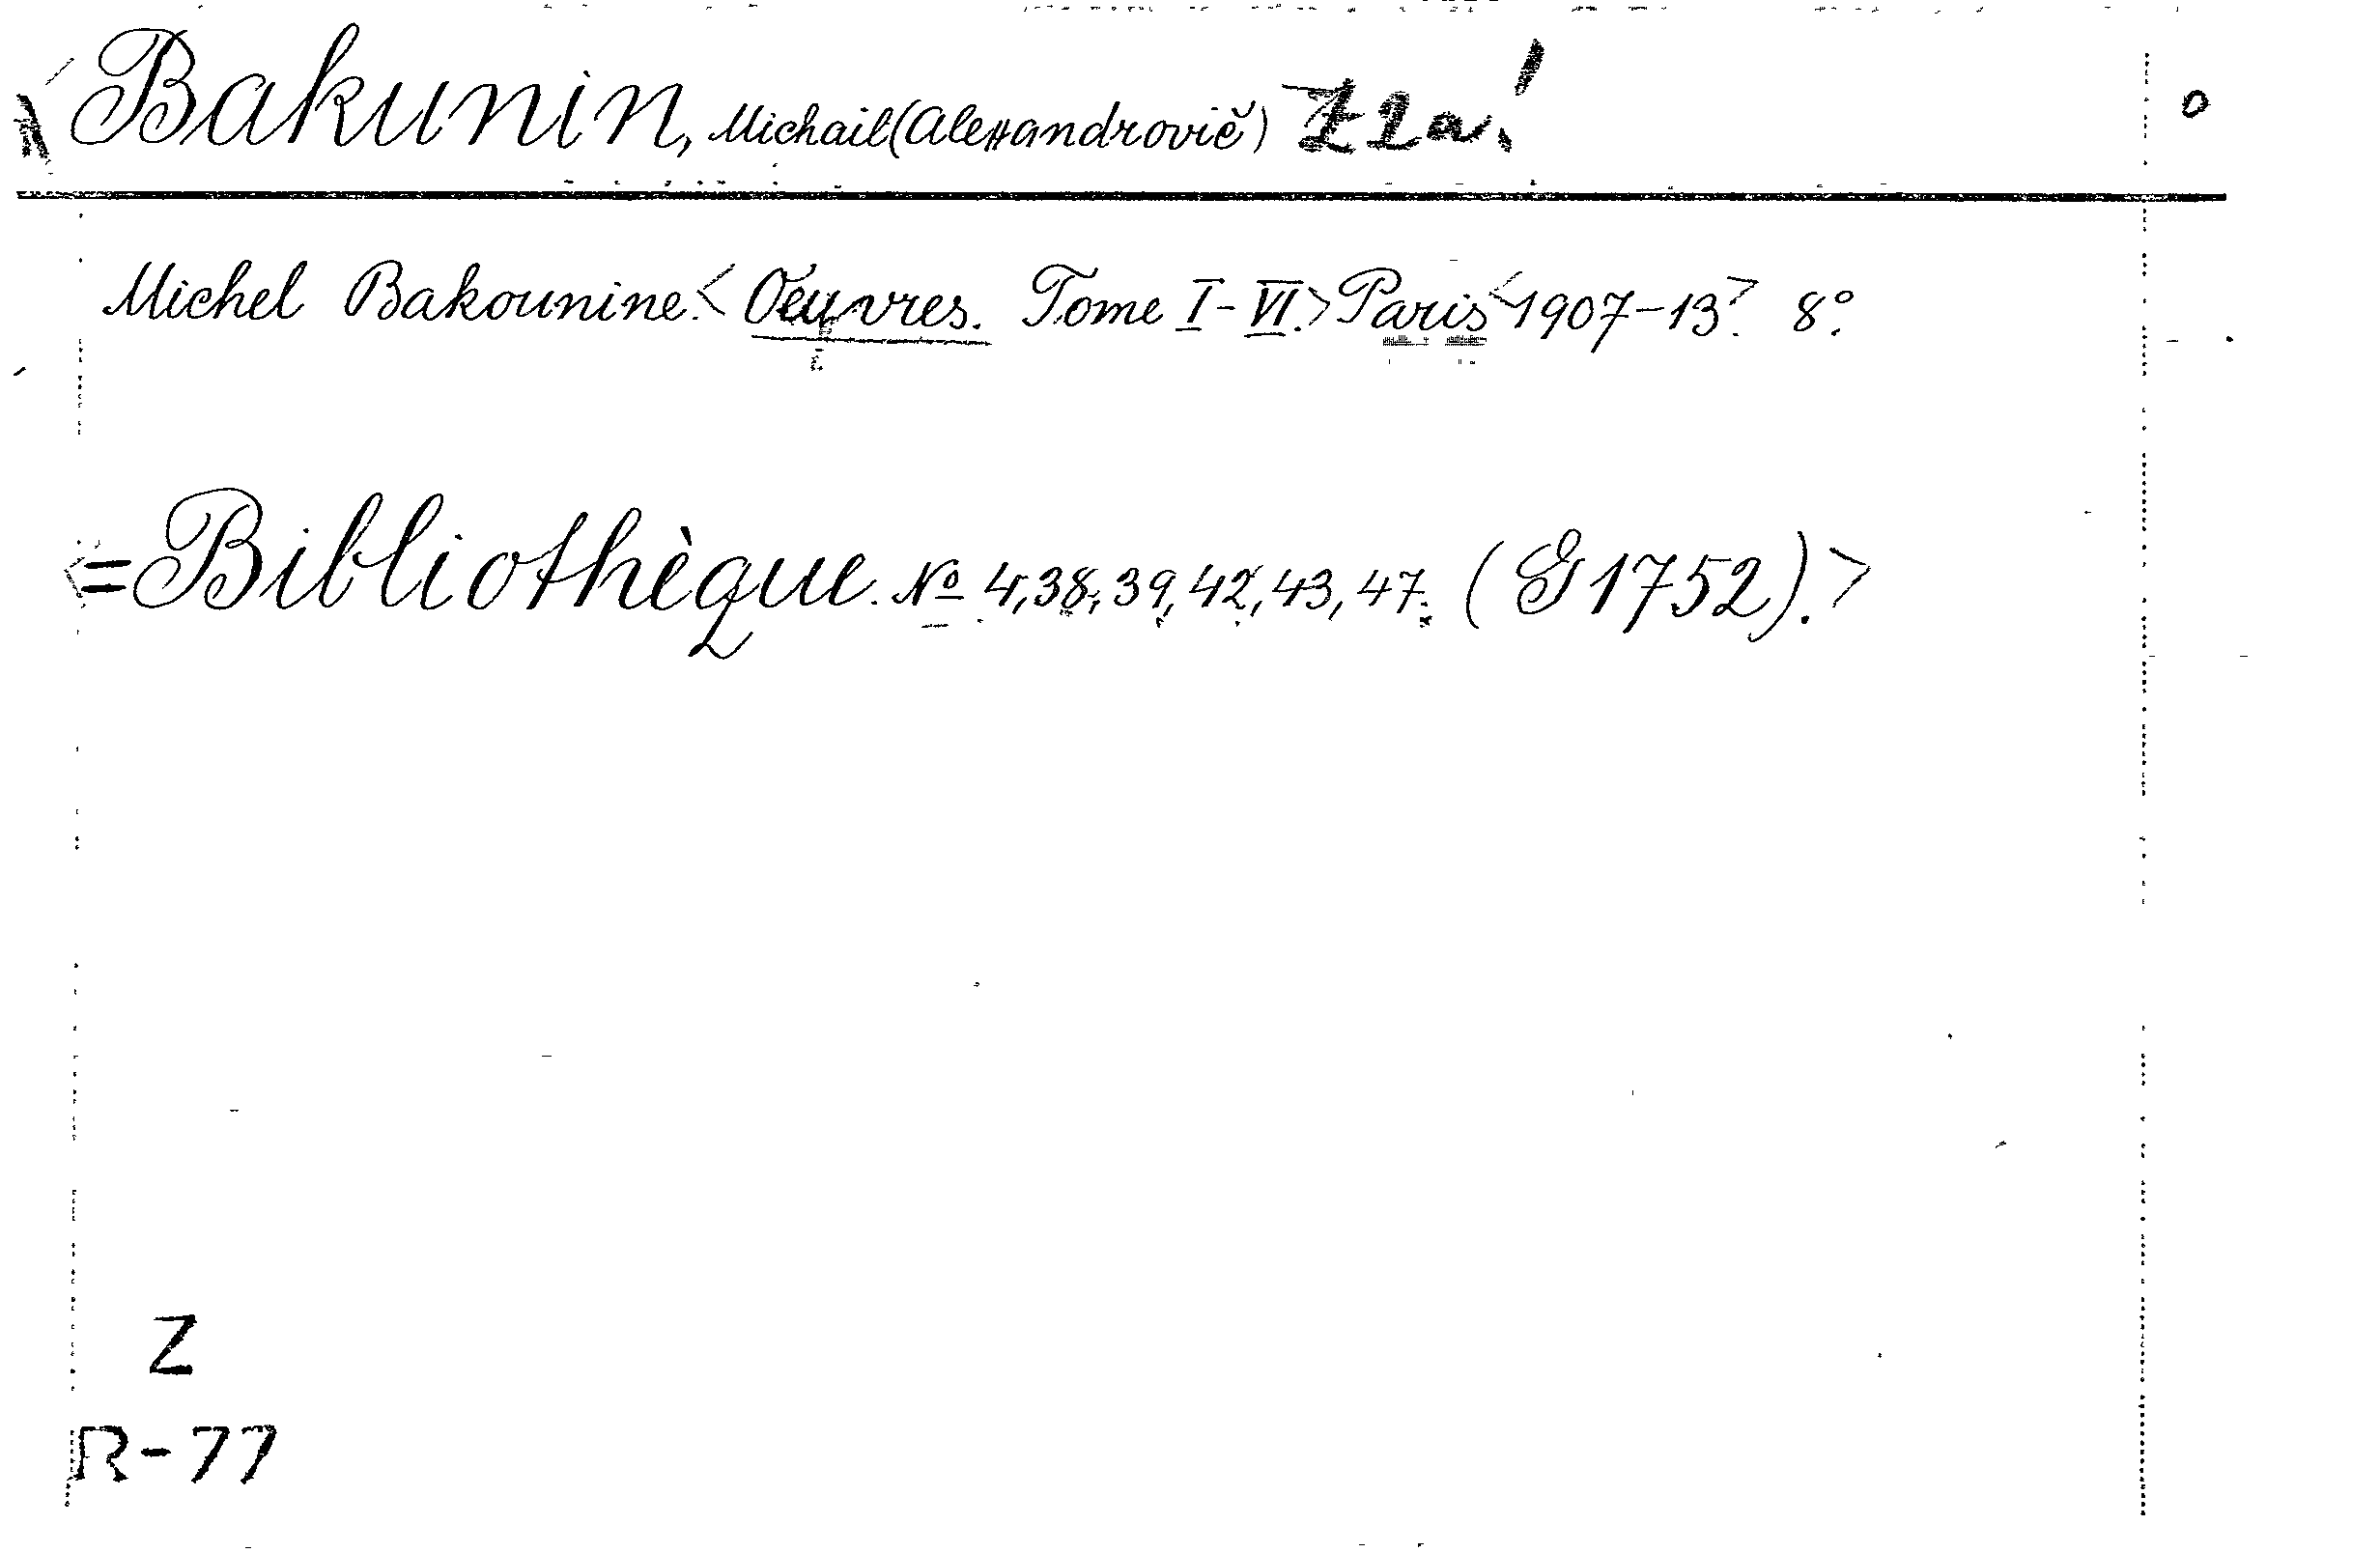 Bakunin, Michail (Alexandrovič) Z2a!
Michel Bakounine. <Oeuvres. Tome I-VI.> Paris <1907-13>. 8°.
<=Bibliothèque. No 4, 38, 39, 42, 43, 47. (G1752).>
Z
R-77